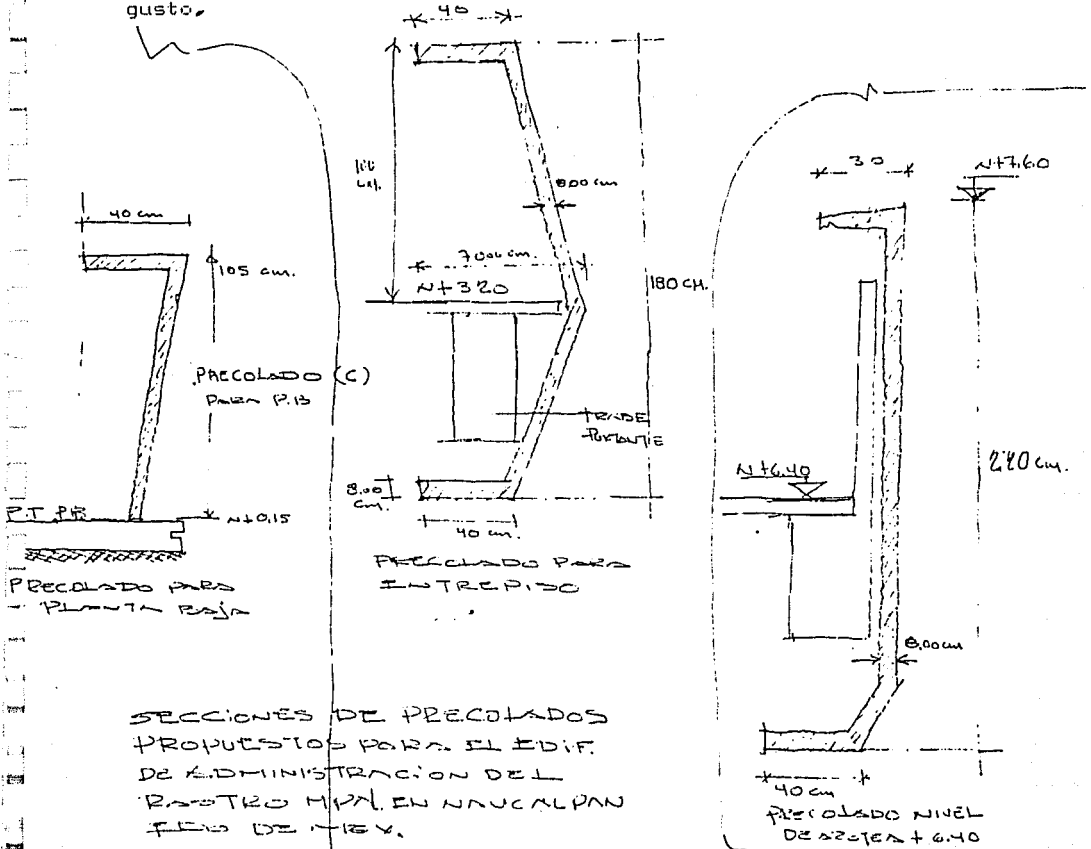 gusto.
40 cm
105 cm.
PRECOLADO (C)
PARA P.B
N+0.15
PRECOLADO PARA
PLANTA BAJA
40
8.00 cm
N+3.20
180 CM.
TRABE
PORTANTE
8.00
cm.
40 cm.
PRECOLADO PARA
ENTREPISO
30
N+7.60
N+6.40
cm.
8.00 cm
40 cm
PRECOLADO NIVEL
DE AZOTEA + 6.40
SECCIONES DE PRECOLADOS
PROPUESTOS PARA EL EDIF.
DE ADMINISTRACION DEL
RASTRO MPAL. EN NAUCALPAN
DE MEX.